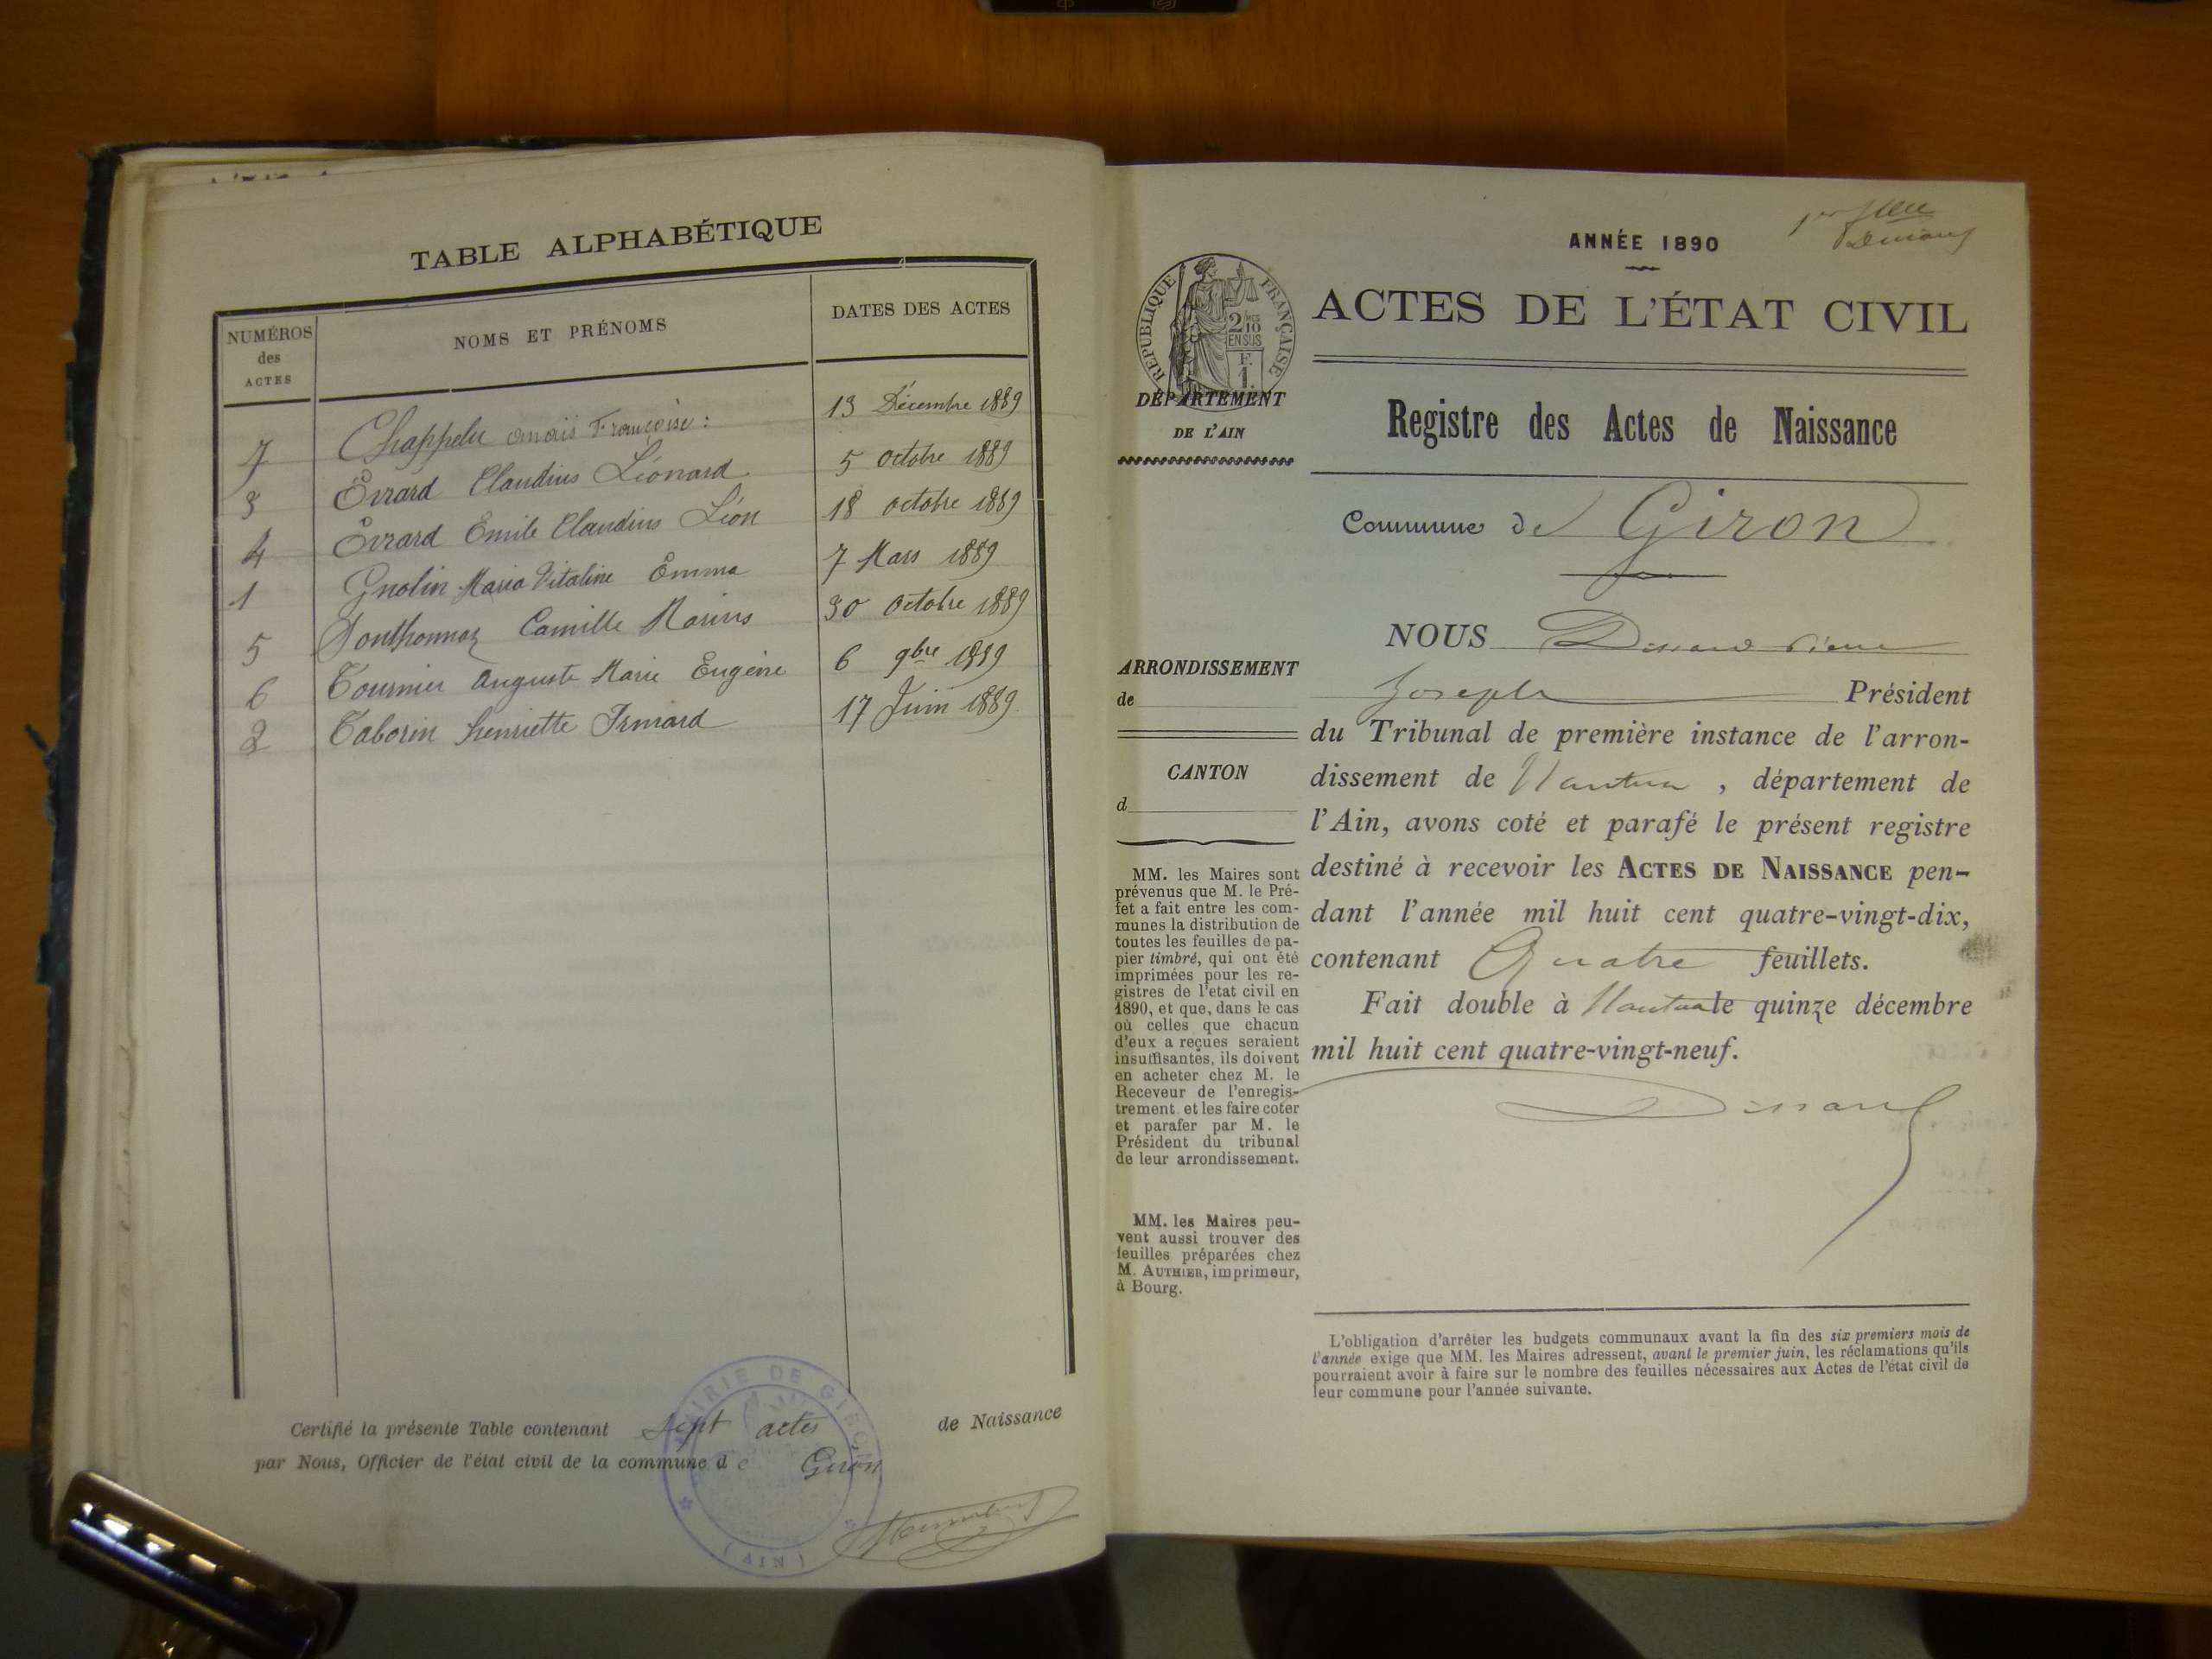 TABLE ALPHABÉTIQUE
NUMÉROS des ACTES
NOMS ET PRÉNOMS
DATES DES ACTES
7 Chappelu Anaïs Françoise: 13 Décembre 1889
3 Evrard Claudius Léonard 5 Octobre 1889
4 Evrard Emile Claudius Léon 18 Octobre 1889
1 Gnolin Maria Vitaline Emma 7 Mars 1889
5 Ponthonnaz Camille Marius 30 Octobre 1889
6 Tournier Auguste Marie Eugène 6 9bre 1889
2 Taborin Henriette 17 Juin 1889
Certifié la présente Table contenant Sept actes de Naissance
par Nous, Officier de l'état civil de la commune de Giron
MAIRIE DE GIRON
(AIN)
ANNÉE 1890
RÉPUBLIQUE FRANÇAISE
2/10 EN SUS
F. 1.
ACTES DE L'ÉTAT CIVIL
DÉPARTEMENT
DE L'AIN
Registre des Actes de Naissance
Commune de Giron
NOUS Dissard Pierre
Joseph Président
du Tribunal de première instance de l'arron-
dissement de Nantua, département de
l'Ain, avons coté et parafé le présent registre
destiné à recevoir les ACTES DE NAISSANCE pen-
dant l'année mil huit cent quatre-vingt-dix,
contenant Quatre feuillets.
Fait double à Nantua le quinze décembre
mil huit cent quatre-vingt-neuf.
Dissard
ARRONDISSEMENT
de
CANTON
d
MM. les Maires sont
prévenus que M. le Pré-
fet a fait entre les com-
munes la distribution de
toutes les feuilles de pa-
pier timbré, qui ont été
imprimées pour les re-
gistres de l'etat civil en
1890, et que, dans le cas
où celles que chacun
d'eux a reçues seraient
insuffisantes, ils doivent
en acheter chez M. le
Receveur de l'enregis-
trement et les faire coter
et parafer par M. le
Président du tribunal
de leur arrondissement.
MM. les Maires peu-
vent aussi trouver des
feuilles préparées chez
M. AUTHIER, imprimeur,
à Bourg.
L'obligation d'arrêter les budgets communaux avant la fin des six premiers mois de
l'année exige que MM. les Maires adressent, avant le premier juin, les réclamations qu'ils
pourraient avoir à faire sur le nombre des feuilles nécessaires aux Actes de l'état civil de
leur commune pour l'année suivante.